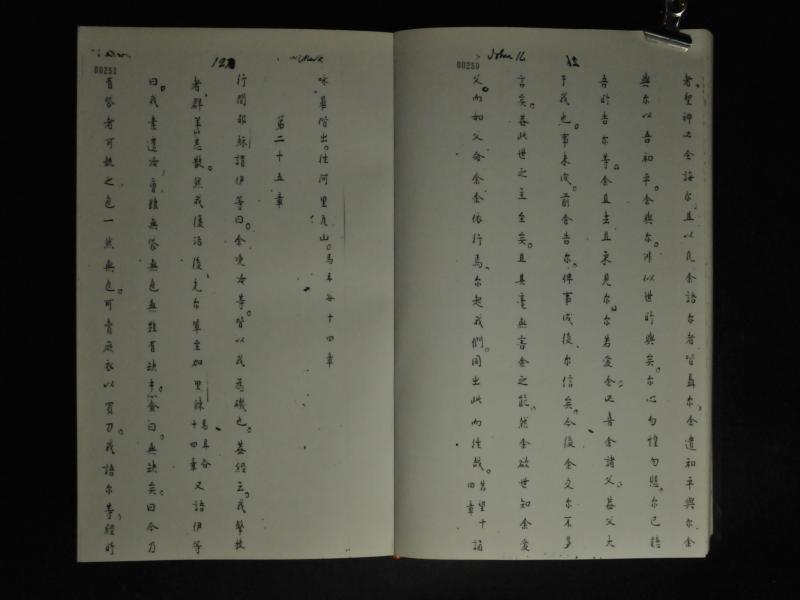 John 16
00250
者聖神必全誨尔且以凡余語尔者皆尔余遺和平與尔余
與尔以吾和平余與尔非以世所與矣尔心勿惶勿懸尔已聽
吾所告尔等余且去且來見尔尔若愛余必喜余詣父蓋父大
于我也事未成前余告尔俾事成後尔信矣今後余交尔不多
言矣蓋此世之主至矣且其毫無害余之能然余欲世知余愛
父而如父命余余依行焉尔起我們同出此而往哉若望十四章
00251
詠畢皆出往阿里瓦山馬耳谷十四章
第二十五章
行間耶穌謂伊等曰余晚汝等皆以我為礙也蓋經云我擊牧
者群羊悉散然我復活後先尔輩至加里肋馬耳谷十四章又語伊等
曰我素遣汝曹雖無袋無包無鞋有缺乎僉曰無缺矣曰今乃
有袋者可執之包一然無包可賣厥衣以買刀我語尔等經所